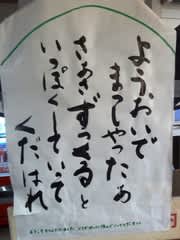 ようおいで
まてしやったぁ
さあさずっくると
いっぽくしていって
くだはれ